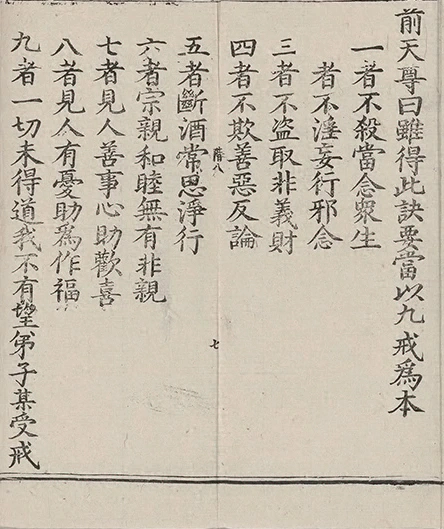 前天尊曰雖得此訣要當以九戒爲本
一者不殺當念衆生
者不淫妄行邪念
三者不盗取非義財
四者不欺善惡反論
階八
七
五者斷酒常思淨行
六者宗親和睦無有非親
七者見人善事心助歡喜
八者見人有憂助爲作福
九者一切未得道我不有望弟子某受戒